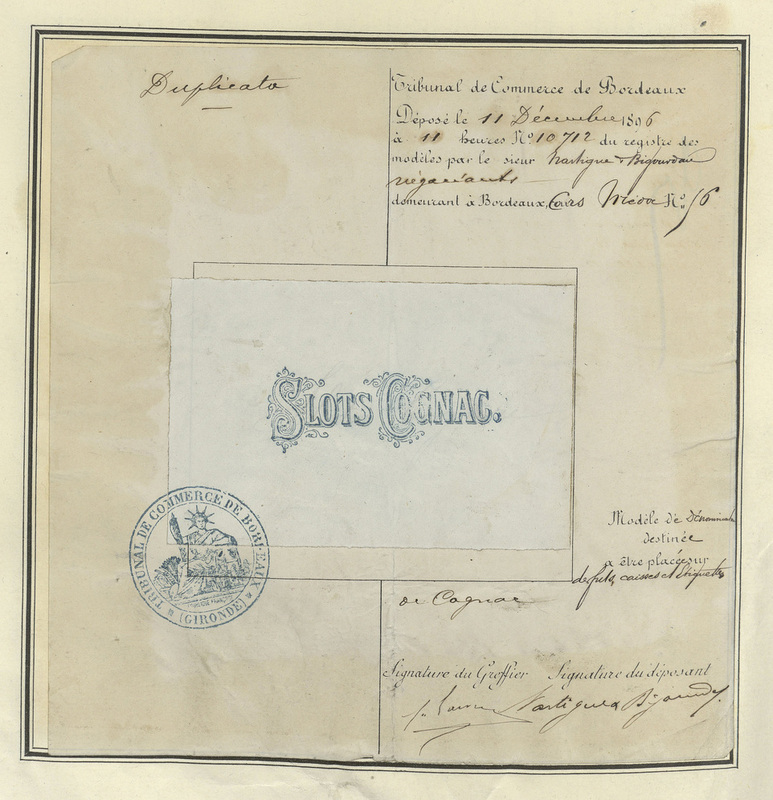 Duplicata
Tribunal de Commerce de Bordeaux
Déposé le 11 Décembre 1896
à 11 heures Nº 10712 du registre des
modèles par le sieur Nartigue & Bigourdan
négociants
demeurant à Bordeaux, Cours Nº 56
SLOTS COGNAC.
TRIBUNAL DE COMMERCE DE BORDEAUX
(GIRONDE)
Modèle de
destinée
à être placée sur
de fûts, caisses et Etiquettes
de Cognac
Signature du Greffier Signature du déposant
Nartigue & Bigourdan